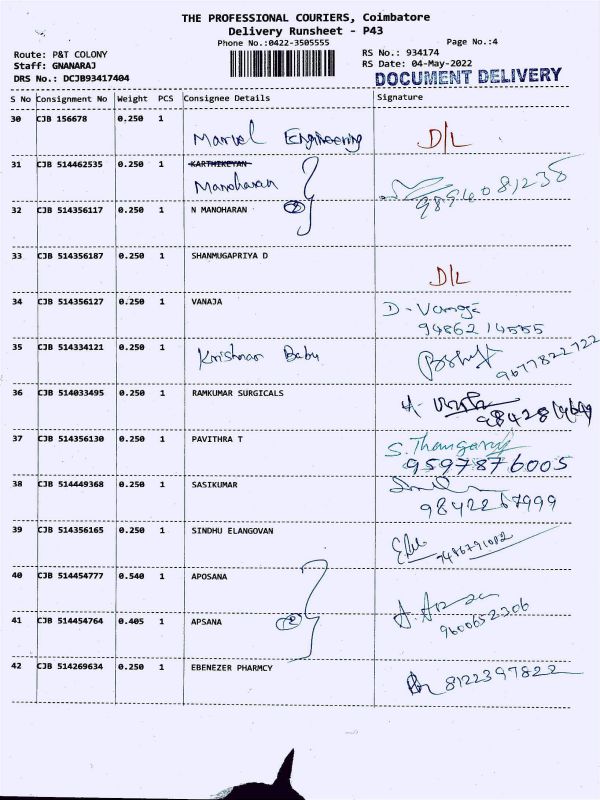 THE PROFESSIONAL COURIERS, Coimbatore
Delivery Runsheet - P43
Phone No.:0422-3505555
Page No.:4
Route: P&T COLONY
RS No.: 934174
Staff: GNANARAJ
RS Date: 04-May-2022
DRS No.: DCJB93417404
DOCUMENT DELIVERY
S No Consignment No Weight PCS Consignee Details Signature
30 CJB 156678 0.250 1 Marvel Engineering D/L
31 CJB 514462535 0.250 1 KARTHIKEYAN
Manoharan 9894081238
32 CJB 514356117 0.250 1 N MANOHARAN 2
33 CJB 514356187 0.250 1 SHANMUGAPRIYA D
D/L
34 CJB 514356127 0.250 1 VANAJA D. Vanaja
9486214555
35 CJB 514334121 0.250 1 Krishnan Babu 9677822722
36 CJB 514033495 0.250 1 RAMKUMAR SURGICALS
37 CJB 514356130 0.250 1 PAVITHRA T S. Thangaraj
9597876005
38 CJB 514449368 0.250 1 SASIKUMAR
9842267999
39 CJB 514356165 0.250 1 SINDHU ELANGOVAN
40 CJB 514454777 0.540 1 APOSANA
41 CJB 514454764 0.405 1 APSANA 2 9600652306
42 CJB 514269634 0.250 1 EBENEZER PHARMCY 8122397822